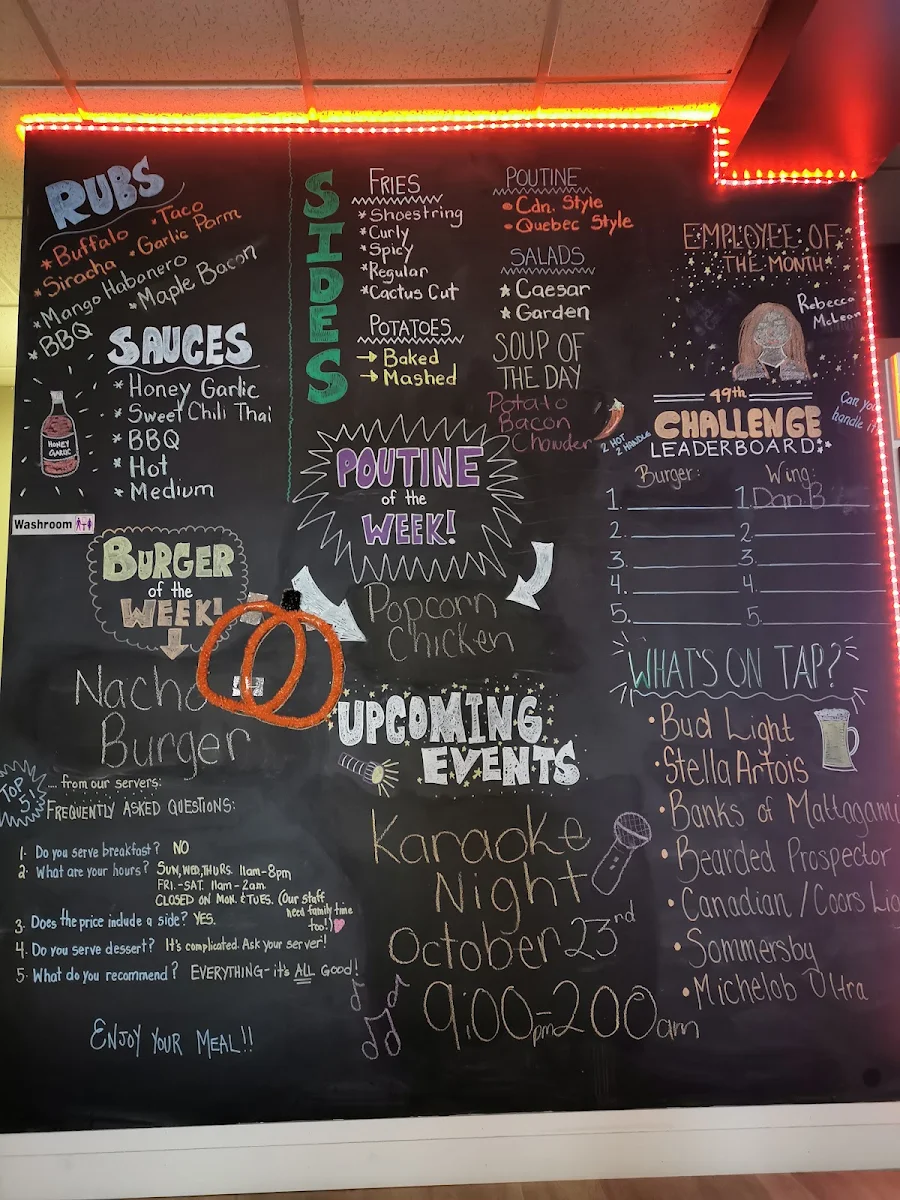 RUBS
* Buffalo * Taco
* Siracha * Garlic Parm
* Mango Habanero
* Maple Bacon
* BBQ
SAUCES
* Honey Garlic
* Sweet Chili Thai
* BBQ
* Hot
* Medium
HONEY
GARLIC
Washroom
SIDES
FRIES
* Shoestring
* Curly
* Spicy
* Regular
* Cactus Cut
POTATOES
→ Baked
→ Mashed
POUTINE
• Cdn. Style
• Quebec Style
SALADS
★ Caesar
★ Garden
SOUP OF
THE DAY
Potato
Bacon
Chowder
EMPLOYEE OF
THE MONTH
Rebecca
McLean
49th
CHALLENGE
LEADERBOARD
2 HOT
2 HANDLE
Can you
handle it
Burger: Wing:
1. 1. Dan B
2. 2.
3. 3.
4. 4.
5. 5.
POUTINE
of the
WEEK!
Popcorn
Chicken
BURGER
of the
WEEK!
Nacho
Burger
TOP
5!
.... from our servers:
FREQUENTLY ASKED QUESTIONS:
1. Do you serve breakfast? NO
2. What are your hours? SUN, WED, THURS. 11am-8pm
FRI.-SAT. 11am-2am
CLOSED ON MON. & TUES. (Our staff
need family time
too!)
3. Does the price include a side? YES.
4. Do you serve dessert? It's complicated. Ask your server!
5. What do you recommend? EVERYTHING-it's ALL Good!
ENJOY YOUR MEAL!!
UPCOMING
EVENTS
Karaoke
Night
October 23rd
9:00pm-2:00am
WHAT'S ON TAP?
• Bud Light
• Stella Artois
• Banks of Mattagami
• Bearded Prospector
• Canadian / Coors Lig
• Sommersby
• Michelob Ultra